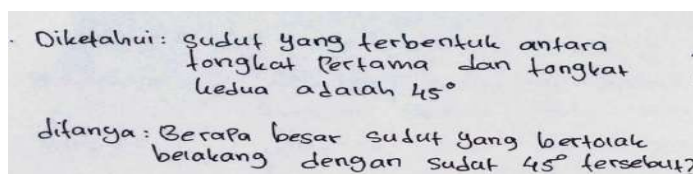 Diketahui: sudut yang terbentuk antara
tongkat Pertama dan tongkat
kedua adalah 45°
ditanya: Berapa besar sudut yang bertolak
belakang dengan sudut 45° tersebut?